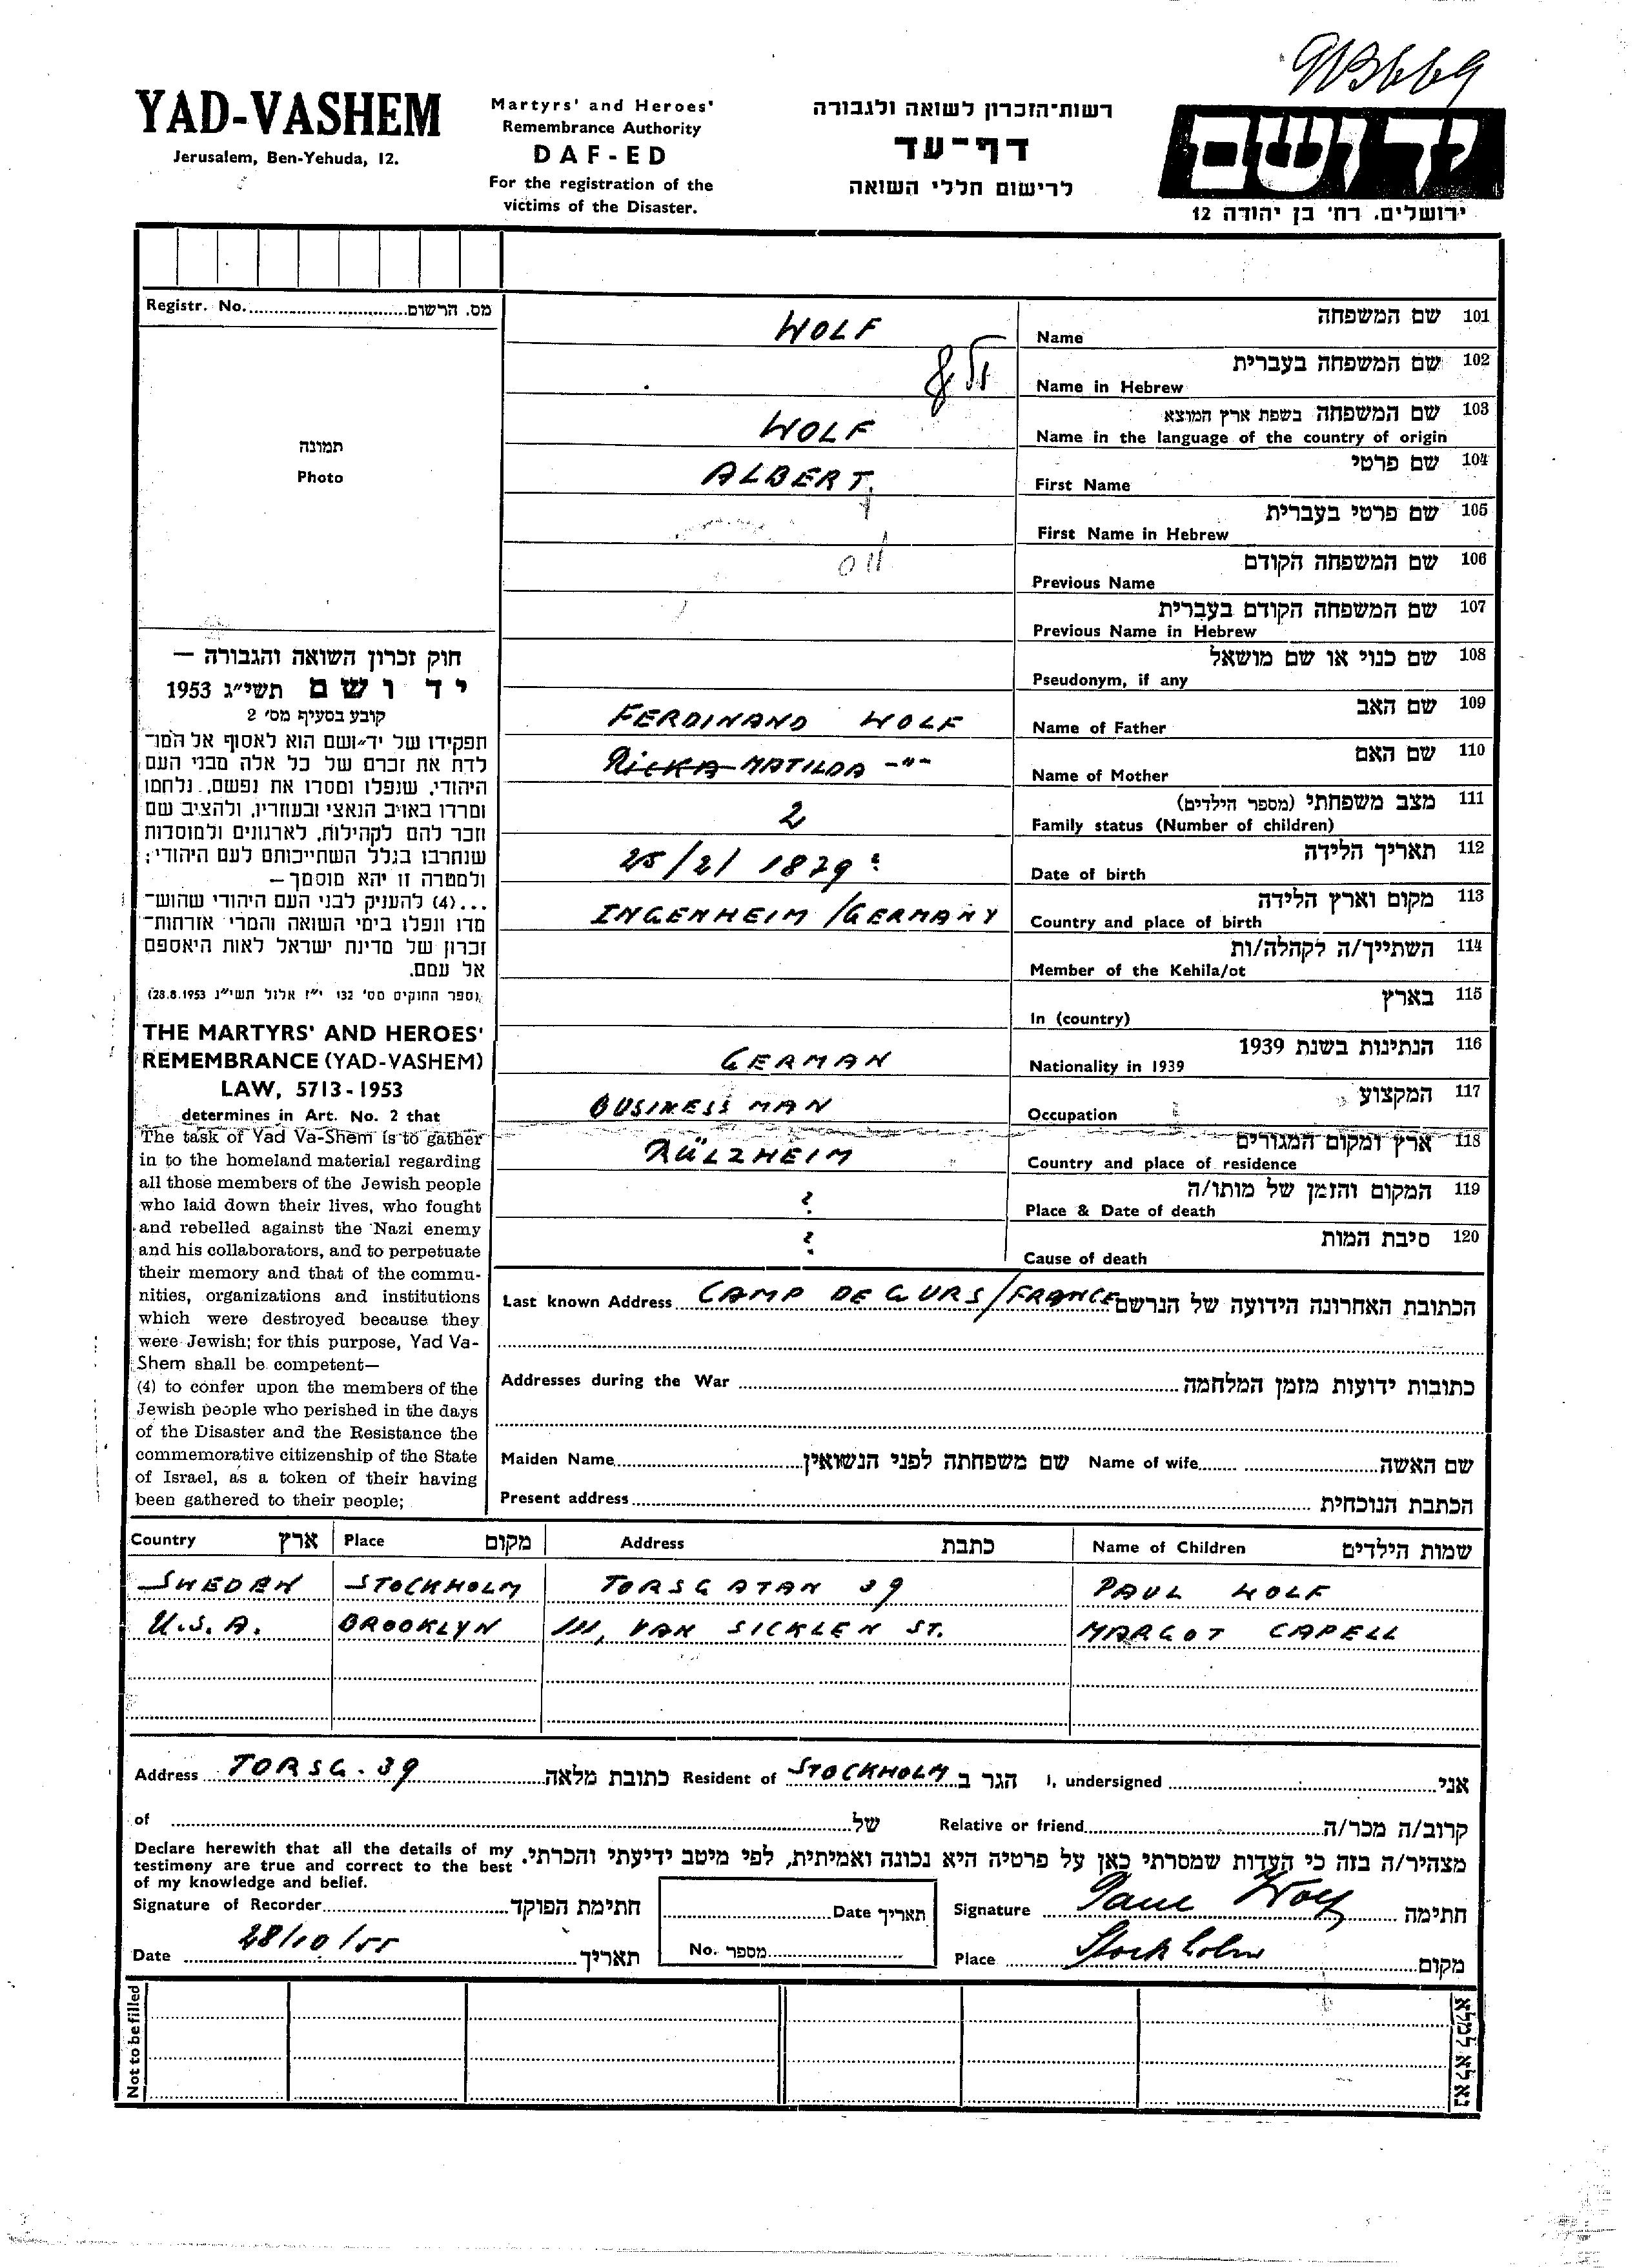 YAD-VASHEM
Jerusalem, Ben-Yehuda, 12.
Martyrs' and Heroes'
Remembrance Authority
DAF-ED
For the registration of the
victims of the Disaster.
רשות-הזכרון לשואה ולגבורה
דף-עד
לרישום חללי השואה
ידושם
ירושלים. רח' בן יהודה 12
Registr. No. מס. הרשום
תמונה
Photo
חוק זכרון השואה והגבורה —
יד ושם תשי"ג 1953
קובע בסעיף מס' 2
תפקידו של יד-ושם הוא לאסוף אל המו-
לדת את זכרם של כל אלה מבני העם
היהודי, שנפלו ומסרו את נפשם, נלחמו
ומרדו באויב הנאצי ובעוזריו, ולהציב שם
וזכר להם לקהילות, לארגונים ולמוסדות
שנחרבו בגלל השתייכותם לעם היהודי;
ולמטרה זו יהא מוסמך—
...(4) להעניק לבני העם היהודי שהוש-
מדו ונפלו בימי השואה והמרי אזרחות-
זכרון של מדינת ישראל לאות היאספם
אל עמם.
(ספר החוקים מס' 132 י"ז אלול תשי"ג 28.8.1953)
THE MARTYRS' AND HEROES'
REMEMBRANCE (YAD-VASHEM)
LAW, 5713-1953
determines in Art. No. 2 that
The task of Yad Va-Shem is to gather
in to the homeland material regarding
all those members of the Jewish people
who laid down their lives, who fought
and rebelled against the Nazi enemy
and his collaborators, and to perpetuate
their memory and that of the commu-
nities, organizations and institutions
which were destroyed because they
were Jewish; for this purpose, Yad Va-
Shem shall be competent—
(4) to confer upon the members of the
Jewish people who perished in the days
of the Disaster and the Resistance the
commemorative citizenship of the State
of Israel, as a token of their having
been gathered to their people;
WOLF Name שם המשפחה 101
ולף Name in Hebrew שם המשפחה בעברית 102
WOLF Name in the language of the country of origin שם המשפחה בשפת ארץ המוצא 103
ALBERT. First Name שם פרטי 104
First Name in Hebrew שם פרטי בעברית 105
Previous Name שם המשפחה הקודם 106
Previous Name in Hebrew שם המשפחה הקודם בעברית 107
Pseudonym, if any שם כנוי או שם מושאל 108
FERDINAND WOLF Name of Father שם האב 109
RICKA MATILDA -"- Name of Mother שם האם 110
2 Family status (Number of children) מצב משפחתי (מספר הילדים) 111
25/2/ 1879? Date of birth תאריך הלידה 112
INGENHEIM /GERMANY Country and place of birth מקום וארץ הלידה 113
Member of the Kehila/ot השתייך/ה לקהלה/ות 114
In (country) בארץ 115
GERMAN Nationality in 1939 הנתינות בשנת 1939 116
BUSINESS MAN Occupation המקצוע 117
RÜLZHEIM Country and place of residence ארץ ומקום המגורים 118
? Place & Date of death המקום והזמן של מותו/ה 119
? Cause of death סיבת המות 120
Last known Address CAMP DE GURS/FRANCE הכתובת האחרונה הידועה של הנרשם
Addresses during the War כתובות ידועות מזמן המלחמה
Maiden Name שם משפחתה לפני הנשואין Name of wife שם האשה
Present address הכתבת הנוכחית
Country ארץ Place מקום Address כתבת Name of Children שמות הילדים
SWEDEN STOCKHOLM TORSGATAN 39 PAUL WOLF
U.S.A. BROOKLYN 111, VAN SICKLEN ST. MARGOT CAPELL
Address TORSG. 39 כתובת מלאה Resident of STOCKHOLM הגר ב I, undersigned אני
of של Relative or friend קרוב/ה מכר/ה
Declare herewith that all the details of my
testimony are true and correct to the best
of my knowledge and belief.
מצהיר/ה בזה כי העדות שמסרתי כאן על פרטיה היא נכונה ואמיתית, לפי מיטב ידיעתי והכרתי.
Signature of Recorder חתימת הפוקד Date תאריך Signature Paul Wolf חתימה
Date 28/10/55 תאריך No. מספר Place Stockholm מקום
Not to be filled
נא לא למלא